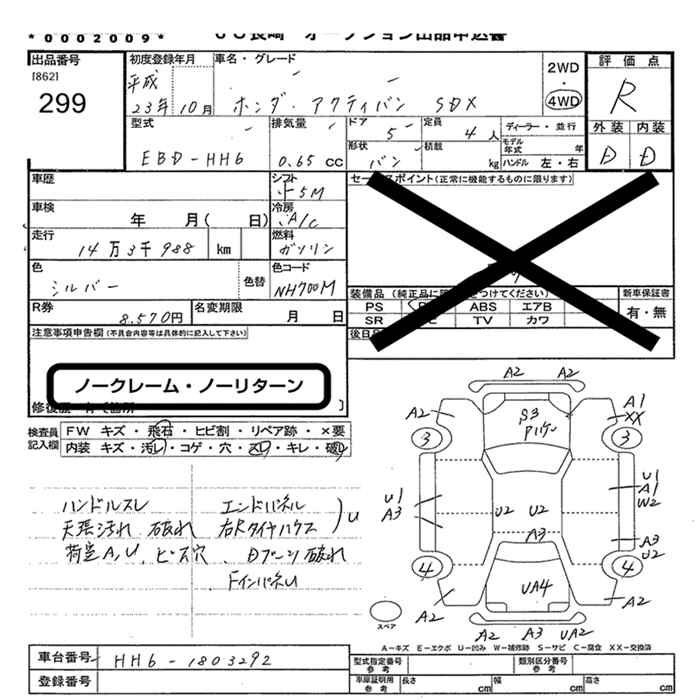 *0002009*
JU長崎 オークション出品申込書
出品番号
[862]
299
初度登録年月
平成
23年10月
車名・グレード
ホンダ・アクティバン SDX
2WD
・
4WD
評価点
R
外装 内装
D D
型式
EBD-HH6
排気量
0.65 CC
ドア
5
形状
バン
定員
4人
積載
kg
ディーラー・並行
モデル年式 年
ハンドル 左・右
車歴
シフト
5M
車検
年 月( 日)
冷房
A/C
走行
14万3千988 km
燃料
ガソリン
色
シルバー
色替
色コード
NH700M
R券
8.570円
名変期限
月 日
セールスポイント(正常に機能するものに限ります)
装備品(純正品に
つけてください)
PS ABS エアB
SR TV カワ
新車保証書
有・無
後日
注意事項申告欄(不具合内容等は具体的に記入して下さい)
ノークレーム・ノーリターン
修復歴
検査員記入欄
FW キズ・飛石・ヒビ割・リペア跡・×要
内装 キズ・汚レ・コゲ・穴・スレ・キレ・破レ
ハンドルスレ
天張汚れ 破れ
荷室A,U、ビス穴
エンドパネル
右Rタイヤハウス
U
Dプーン破れ
FインパネU
A2 A2
A2
A1
XX
S3
3
3
U1
A3
U1
A1
W2
U2
U2
A3
A3
U2
4
4
UA4
A2
A2
A2 A3 UA2
スペア
A-キズ E-エクボ U-凹み W-補修跡 S-サビ C-腐食 XX-交換済
車台番号
HH6-1803292
登録番号
型式指定番号
参考
類別区分番号
参考
車庫証明用
参考
長さ cm
幅 cm
高さ cm